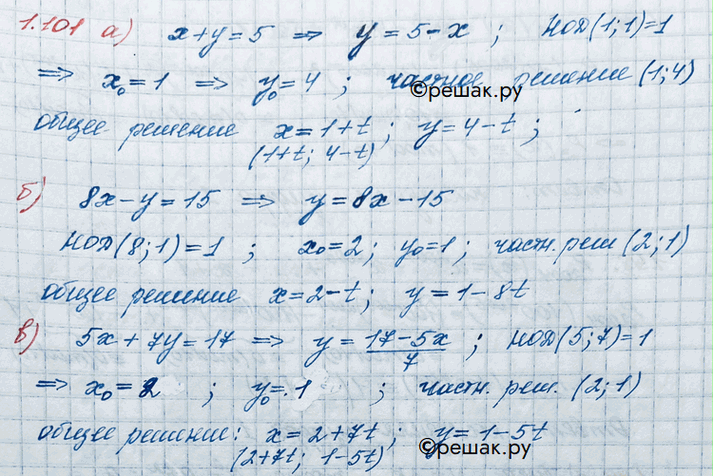 1.101 а) x+y=5 ⇒ y=5-x ; НОД(1;1)=1
⇒ x₀=1 ⇒ y₀=4 ; частное решение (1;4)
©решак.ру
общее решение x=1+t ; y=4-t ;
(1+t; 4-t)
б) 8x-y=15 ⇒ y=8x-15
НОД(8;1)=1 ; x₀=2 ; y₀=1 ; частн. реш (2;1)
общее решение x=2-t ; y=1-8t
в) 5x+7y=17 ⇒ y=17-5x/7 ; НОД(5;7)=1
⇒ x₀=2 ; y₀=1 ; частн. реш. (2;1)
общее решение: x=2+7t ; y=1-5t
(2+7t; 1-5t)
©решак.ру